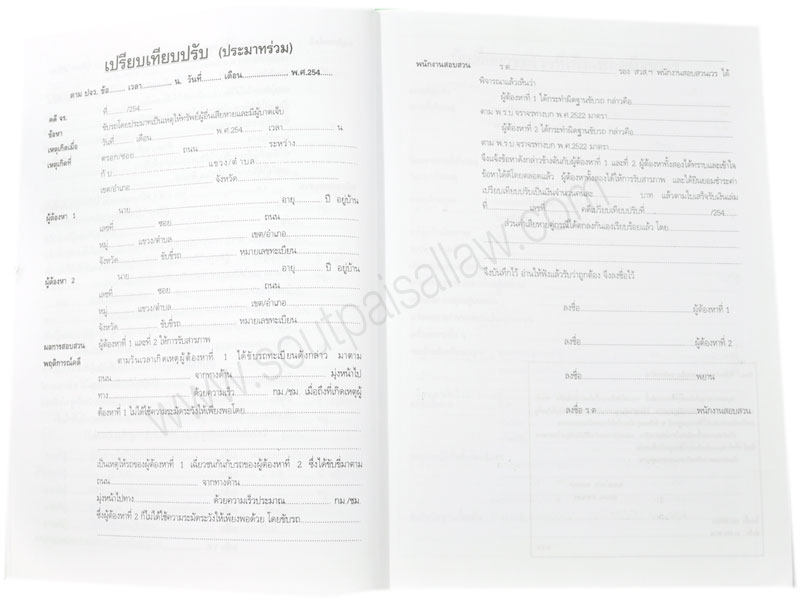 เปรียบเทียบปรับ (ประมาทร่วม)
ตาม ปจว. ข้อ........ เวลา.............. น. วันที่........ เดือน.................... พ.ศ.254.....
คดี จร. ที่........./254.....
ข้อหา ขับรถโดยประมาทเป็นเหตุให้ทรัพย์ผู้อื่นเสียหายและมีผู้บาดเจ็บ
เหตุเกิดเมื่อ วันที่........ เดือน........................ พ.ศ.254....... เวลา.................. น.
เหตุเกิดที่ ตรอก/ซอย.................. ถนน.......................... ระหว่าง....................
กับ.............................. แขวง/ตำบล..............................
เขต/อำเภอ.............................. จังหวัด..............................
ผู้ต้องหา 1 นาย.................................................. อายุ.......... ปี อยู่บ้าน
เลขที่.................. ซอย.............................. ถนน..............................
หมู่........ แขวง/ตำบล.............................. เขต/อำเภอ....................
จังหวัด............ ขับขี่รถ.................... หมายเลขทะเบียน....................
ผู้ต้องหา 2 นาย.................................................. อายุ.......... ปี อยู่บ้าน
เลขที่.................. ซอย.............................. ถนน..............................
หมู่........ แขวง/ตำบล.............................. เขต/อำเภอ....................
จังหวัด............ ขับขี่รถ.................... หมายเลขทะเบียน....................
ผลการสอบสวน ผู้ต้องหาที่ 1 และที่ 2 ให้การรับสารภาพ
พฤติการณ์คดี ตามวันเวลาเกิดเหตุผู้ต้องหาที่ 1 ได้ขับรถทะเบียนดังกล่าว มาตาม
ถนน.............................. จากทางด้าน.............................. มุ่งหน้าไป
ทาง.............................. ด้วยความเร็ว............ กม./ชม. เมื่อถึงที่เกิดเหตุผู้
ต้องหาที่ 1 ไม่ได้ใช้ความระมัดระวังให้เพียงพอโดย..............................
เป็นเหตุให้รถของผู้ต้องหาที่ 1 เฉี่ยวชนกันกับรถของผู้ต้องหาที่ 2 ซึ่งได้ขับขี่มาตาม
ถนน.............................. จากทางด้าน..............................
มุ่งหน้าไปทาง.............................. ด้วยความเร็วประมาณ............ กม./ชม.
ซึ่งผู้ต้องหาที่ 2 ก็ไม่ได้ใช้ความระมัดระวังให้เพียงพอด้วย โดยขับรถ....................
พนักงานสอบสวน ร.ต.............................. รอง สวส.ฯ พนักงานสอบสวนเวร ได้
พิจารณาแล้วเห็นว่า
ผู้ต้องหาที่ 1 ได้กระทำผิดฐานขับรถ กล่าวคือ..............................
ตาม พ.ร.บ จราจรทางบก พ.ศ.2522 มาตรา..............................
ผู้ต้องหาที่ 2 ได้กระทำผิดฐานขับรถ กล่าวคือ..............................
ตาม พ.ร.บ จราจรทางบก พ.ศ.2522 มาตรา..............................
จึงแจ้งข้อหาดังกล่าวข้างต้นกับผู้ต้องหาที่ 1 และที่ 2 ผู้ต้องหาทั้งสองได้ทราบและเข้าใจ
ข้อหาได้ดีโดยตลอดแล้ว ผู้ต้องหาทั้งสองได้ให้การรับสารภาพ และได้ยินยอมชำระค่า
เปรียบเทียบปรับเป็นเงินจำนวนคนละ............ บาท แล้วตามใบเสร็จรับเงินเล่ม
ที่.................. เลขที่.................. คดีเปรียบเทียบปรับที่.................... /254.....
ส่วนค่าเสียหายคู่กรณีได้ตกลงกันเองเรียบร้อยแล้ว โดย....................
จึงบันทึกไว้ อ่านให้ฟังแล้วรับว่าถูกต้อง จึงลงชื่อไว้
ลงชื่อ.............................. ผู้ต้องหาที่ 1
ลงชื่อ.............................. ผู้ต้องหาที่ 2
ลงชื่อ.............................. พยาน
ลงชื่อ ร.ต.............................. พนักงานสอบสวน
www.soutpaisallaw.com